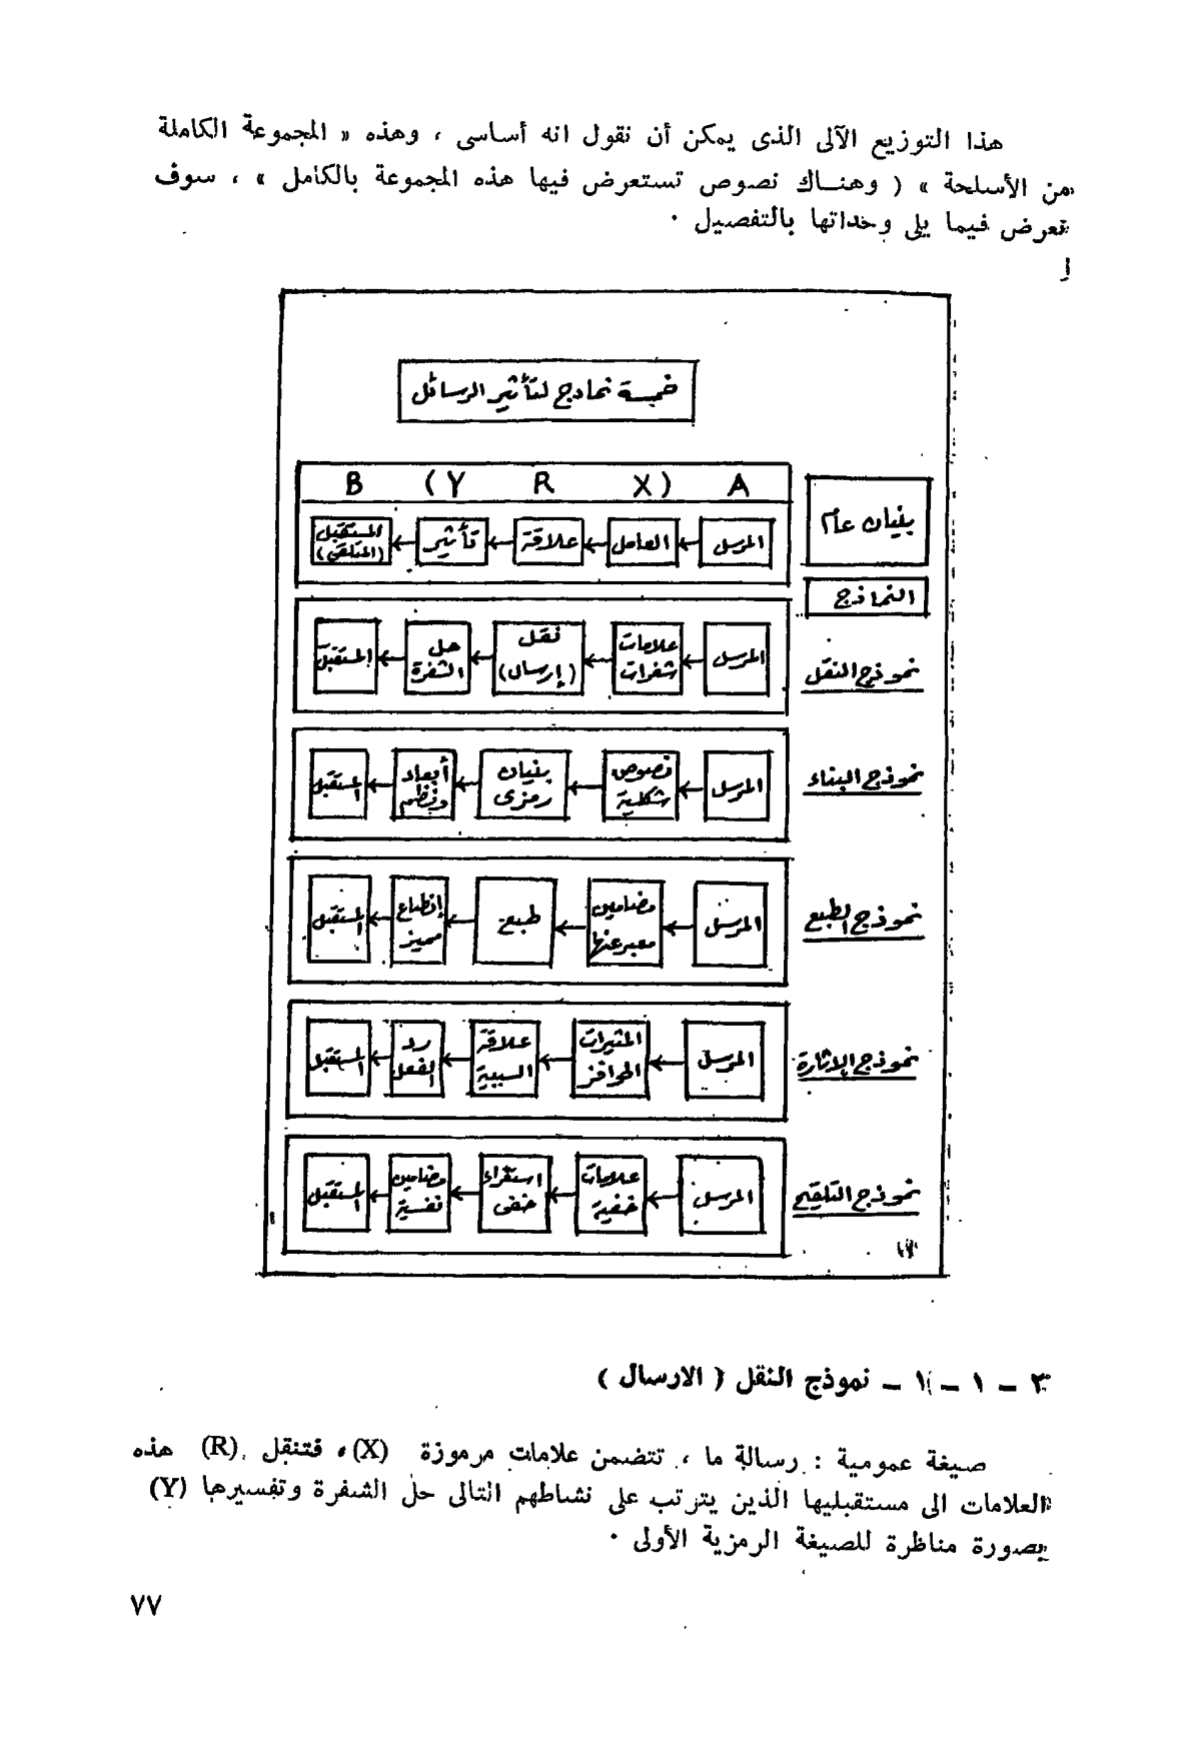 هذا التوزيع الآلى الذى يمكن أن نقول انه أساسى ، وهذه « المجموعة الكاملة
من الأسلحة » ( وهنـاك نصوص تستعرض فيها هذه المجموعة بالكامل » ، سوف
نعرض فيما يلى وحداتها بالتفصيل ٠
خمسة نماذج لتأثير الرسائل
A (X R Y) B
بنيان عام
المرسل ← العامل ← علاقة ← تأثير ← المستقبل (المتلقى)
النماذج
نموذج النقل
المرسل ← علامات شفرات ← نقل (إرسال) ← حل الشفرة ← المستقبل
نموذج البناء
المرسل ← نصوص شكلية ← بنيان رمزى ← أبعاد ونظم ← المستقبل
نموذج الطبع
المرسل ← مضامين معبر عنها ← طبع ← إنطباع مميز ← المستقبل
نموذج الإثارة
المرسل ← المثيرات الحوافز ← علاقة السببية ← رد الفعل ← المستقبل
نموذج التلقيح
المرسل ← علامات خفية ← استقراء خفى ← مضامين نفسية ← المستقبل
٣ – ١ – ١ – نموذج النقل ( الارسال )
صيغة عمومية : رسالة ما ، تتضمن علامات مرموزة (X) ، فتنقل (R) هذه
العلامات الى مستقبليها الذين يترتب على نشاطهم التالى حل الشفرة وتفسيرها (Y)
بصورة مناظرة للصيغة الرمزية الأولى ٠
٧٧